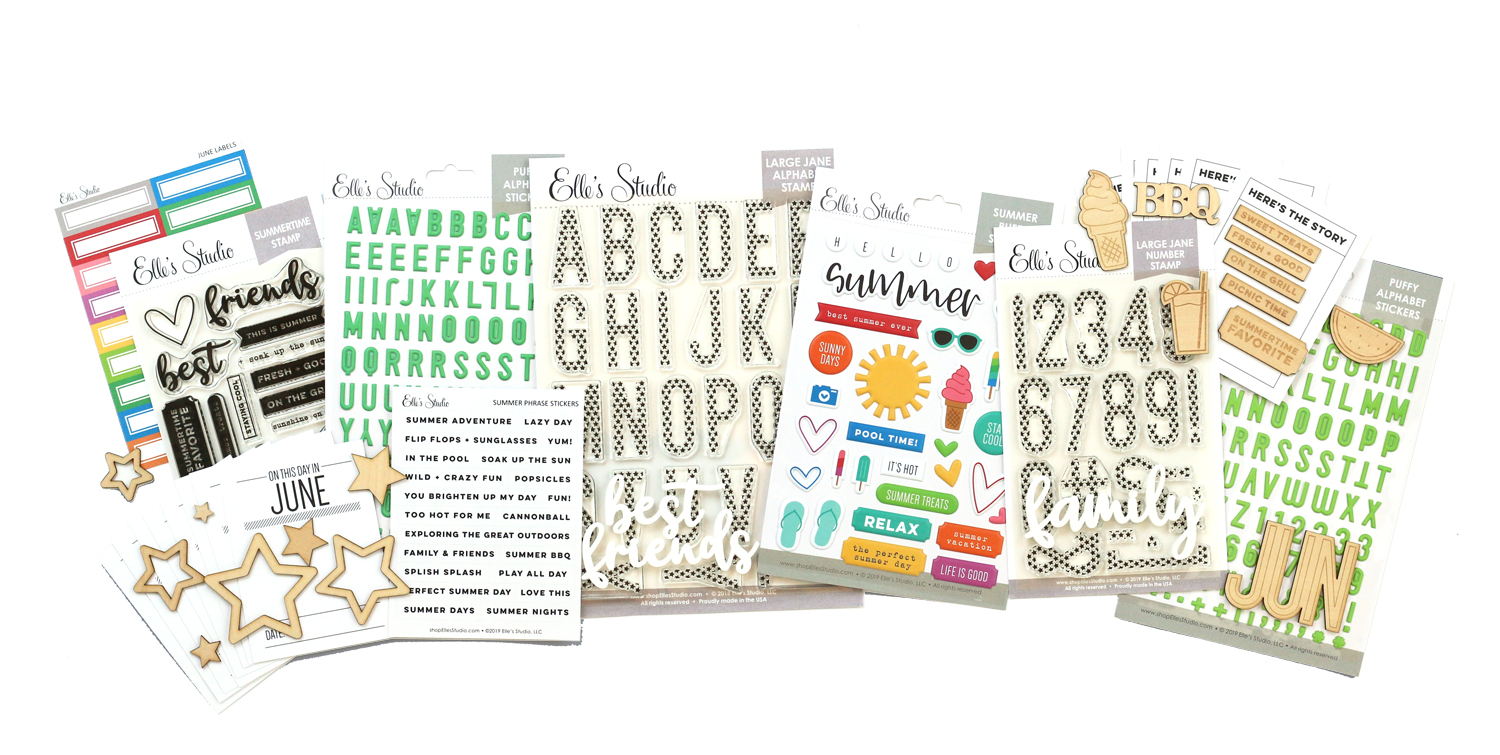 JUNE LABELS
Elle's Studio
Elle's Studio
SUMMERTIME
STAMP
friends
best
THIS IS SUMMER
soak up the sun
FRESH + GOOD
ON THE GR
STAYING COOL
SUMMERTIME
FAVORITE
sunshine on
Elle's Studio
PUF
ALPH
STICK
AAAABBBCC
EEEEFFGG
MNNNOOOO
QQRRRSSST
UUU
YYY
ON THIS DAY IN
JUNE
DATE
Elle's Studio
SUMMER PHRASE STICKERS
SUMMER ADVENTURE LAZY DAY
FLIP FLOPS + SUNGLASSES YUM!
IN THE POOL SOAK UP THE SUN
WILD + CRAZY FUN POPSICLES
YOU BRIGHTEN UP MY DAY FUN!
TOO HOT FOR ME CANNONBALL
EXPLORING THE GREAT OUTDOORS
FAMILY & FRIENDS SUMMER BBQ
SPLISH SPLASH PLAY ALL DAY
PERFECT SUMMER DAY LOVE THIS
SUMMER DAYS SUMMER NIGHTS
shopEllesStudio.com • ©2019 Elle's Studio, LLC
Elle's Studio
LARGE JANE
ALPHABET
STAMP
ABCDEF
GHIJK
MNOPQ
best
friends
shopEllesStudio.com • © 2018 Elle's Studio, LLC
All rights reserved • Proudly made in the USA
Elle's Studio
SUMMER
HELLO
summer
best summer ever
SUNNY
DAYS
POOL TIME!
STAY
COOL
IT'S HOT
SUMMER TREATS
RELAX
summer
vacation
the perfect
summer day
LIFE IS GOOD
www.shopEllesStudio.com • © 2019 Elle's Studio, LLC • All rights reserved
Elle's Stud
LARGE JANE
NUMBER
STAMP
1234
67891
family
www.shopEllesStudio.com • © 2019 Elle's Studio, LLC
All rights reserved • Proudly made in the USA
BBQ
HERE'
HERE'S THE STORY
SWEET TREATS
FRESH + GOOD
ON THE GRILL
PICNIC TIME
SUMMERTIME
FAVORITE
PUFFY
ALPHABET
STICKERS
JUN
www.shopEllesStudio.com • © 2019 Elle's Studio, LLC • All rights reserved